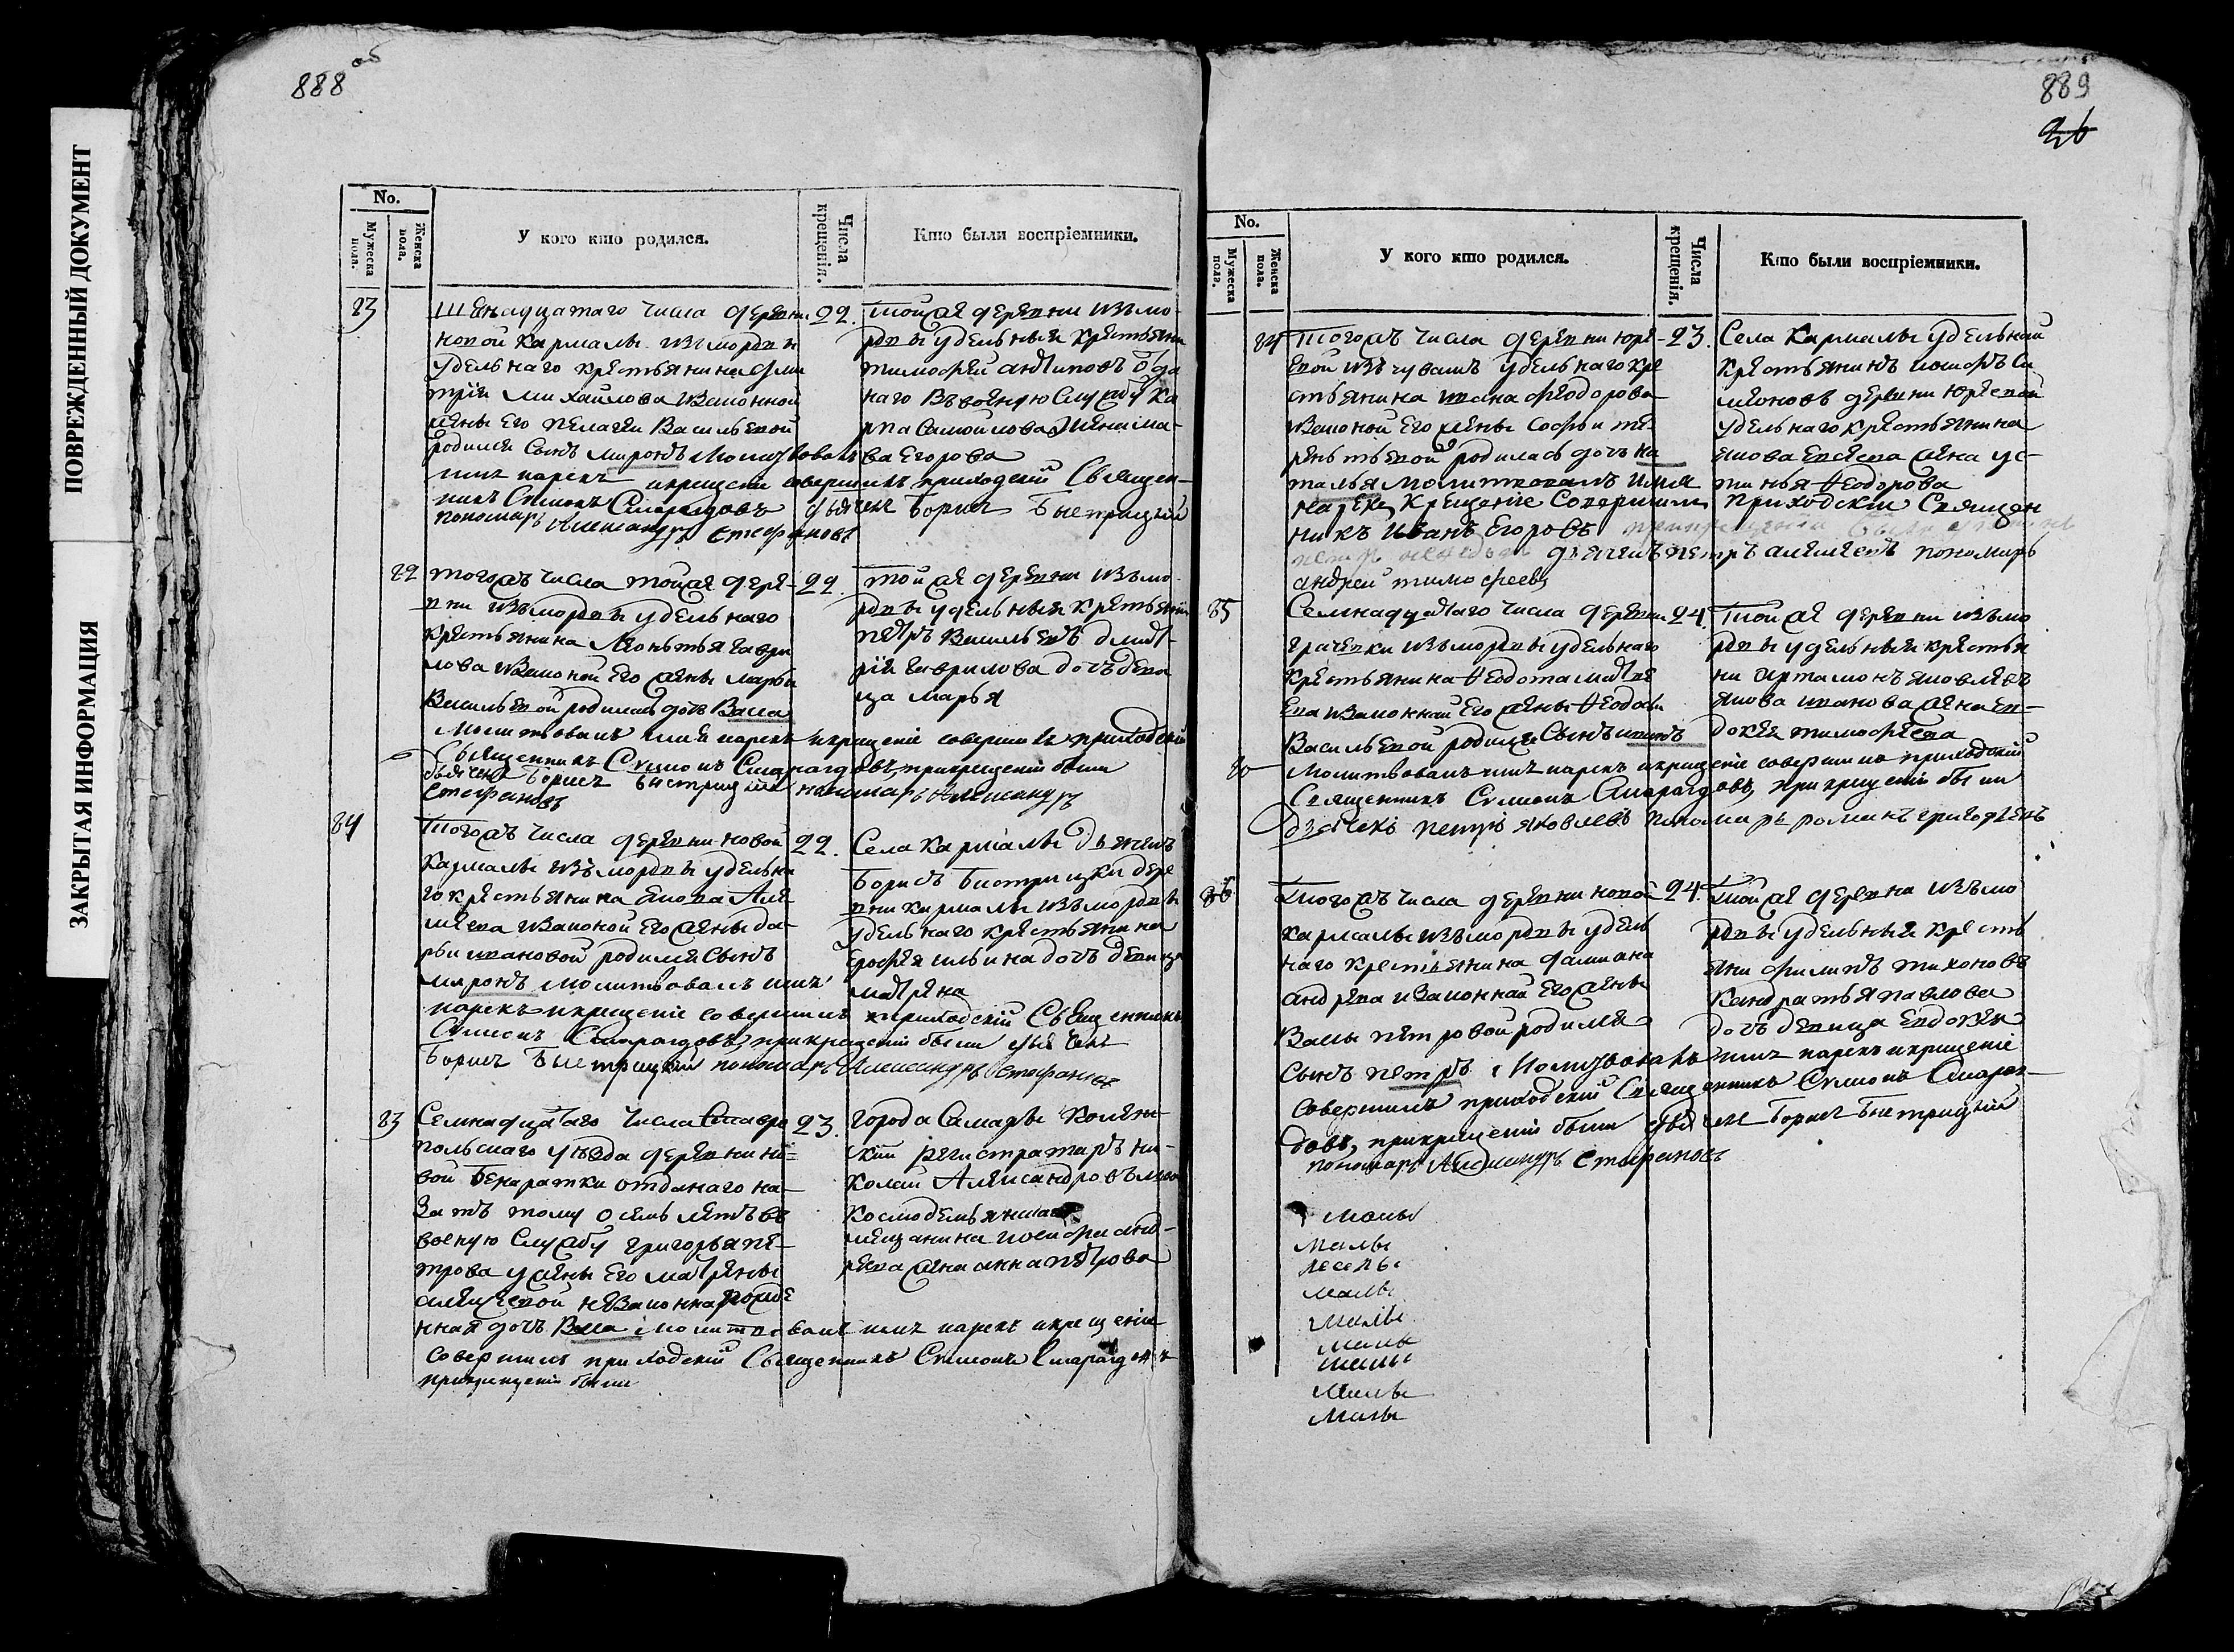 ПОВРЕЖДЕННЫЙ ДОКУМЕНТ
ЗАКРЫТАЯ ИНФОРМАЦИЯ
888 об
No.
Мужеска пола.
Женска пола.
У кого кто родился.
Числа крещенія.
Кто были воспріемники.
83
Шеснадцатаго числа деревни
новой Кармалы изъ мордвы
удельнаго крестьянина Дми
трія Михайлова изаконной
жены его пелагеи Васильевой
родился сынъ миронъ Молитвовалъ
имя нарекъ икрещеніе совершилъ приходскій Священ
никъ Симеонъ Смарагдовъ дьячекъ Борисъ Быстрицкій
пономарь Александръ Стефановъ
22.
тойже деревни изъ мо-
рдвы удельный крестьяни
тимофей антиповъ отда
наго Въвоеную Службу ка
рпа Самойлова жена ма-
ва Егорова
82
тогожъ числа тойже дере-
вни изъ мордвы удельнаго
крестьянина Леонтья гаври
лова изаконой его жены марьи
Васильевой родилась дочъ Васса
Молитвовалъ имя нарекъ икрещеніе совершилъ приходскій
Священникъ Симеонъ Смарагдовъ, прикрещеніи были
дьячекъ Борисъ Быстрицкій пономарь Александръ
Стефановъ
22.
тойже деревни изъ мо-
рдвы удельный крестьянин
петръ Васильевъ дмит-
рія гаврилова дочъ деви
ца марья
84
Тогожъ числа деревни новой
Кармалы изъ мордвы удельна
го крестьянина Якова Але
ксеева изаконой его жены да-
рьи ивановой родился сынъ
миронъ молитвовалъ имя
нарекъ икрещеніе совершилъ приходскій Священникъ
Симеонъ Смарагдовъ, прикрещеніи были дьячекъ
Борисъ Быстрицкій пономарь Александръ Стефановъ
22.
Села Кармалы дьячекъ
Борисъ Быстрицки дере
вни кармалы изъ мордвы
удельнаго крестьянина
ерофея ильина дочъ девица
матрена
83
Семнадцатаго числа Ставро
польскаго уезда деревни но-
вой Бенаратки отданаго на-
задъ тому осемь летъ въ
военую Службу григорья пе-
трова у жены его матрены
алексеевой незаконна рожде
нная дочъ Васса Молитвовалъ имя нарекъ икрещеніе
совершилъ приходскій Священникъ Симеонъ Смарагдовъ
прикрещеніи были
23.
города Самары Колежс
кій регистраторъ ни-
колай Александровъ
Космодемьянска
мещанина иосифа анд-
реева жена анна петрова
889
26
No.
Мужеска пола.
Женска пола.
У кого кто родился.
Числа крещенія.
Кто были воспріемники.
84
Тогожъ числа деревни юре
евой изъ чувашъ удельнаго кре
стьянина ивана феодорова
изаконой его жены софьи те
рентьевой родилась дочъ на
талья молитвовалъ имя
нарекъ, Крещеніе Совершилъ Приходскіи Священ
никъ Иванъ Егоровъ прикрещеніи были
дьячекъ петръ алексеевъ пономарь
андрей тимофеевъ
23.
Села Кармалы удельный
крестьянинъ иосифъ си
меоновъ деревни юреевой
удельнаго крестьянина
якова евсеева жена ус-
тинья Феодорова
85
Семнадцатаго числа деревни
грачевки изъ мордвы удельнаго
крестьянина Феодота матве
ева изаконной его жены Феодосьи
Васильевой родился сынъ
Молитвовалъ имя нарекъ икрещеніе совершилъ приходскій
Священникъ Симеонъ Смарагдовъ, прикрещеніи были
дьячекъ петръ яковлевъ пономарь романъ григорьевъ
24.
Тойже деревни изъ мо
рдвы удельный крестья
ни артамонъ яковлевъ
якова иванова жена ев-
докея тимофеева
86
Тогожъ числа деревни новой
кармалы изъ мордвы удель
наго крестьянина дамиана
андреева изаконной его жены
Вассы петровой родился
сынъ петръ Молитвовалъ имя нарекъ икрещеніе
совершилъ приходскій Священникъ Симеонъ Смараг
довъ, прикрещеніи были дьячекъ Борисъ Быстрицкій
пономарь Александръ Стефановъ
24.
Тойже деревни изъ мо
рдвы удельный кресть
яни филипъ тихоновъ
Кондратья павлова
дочъ девица Евдокея